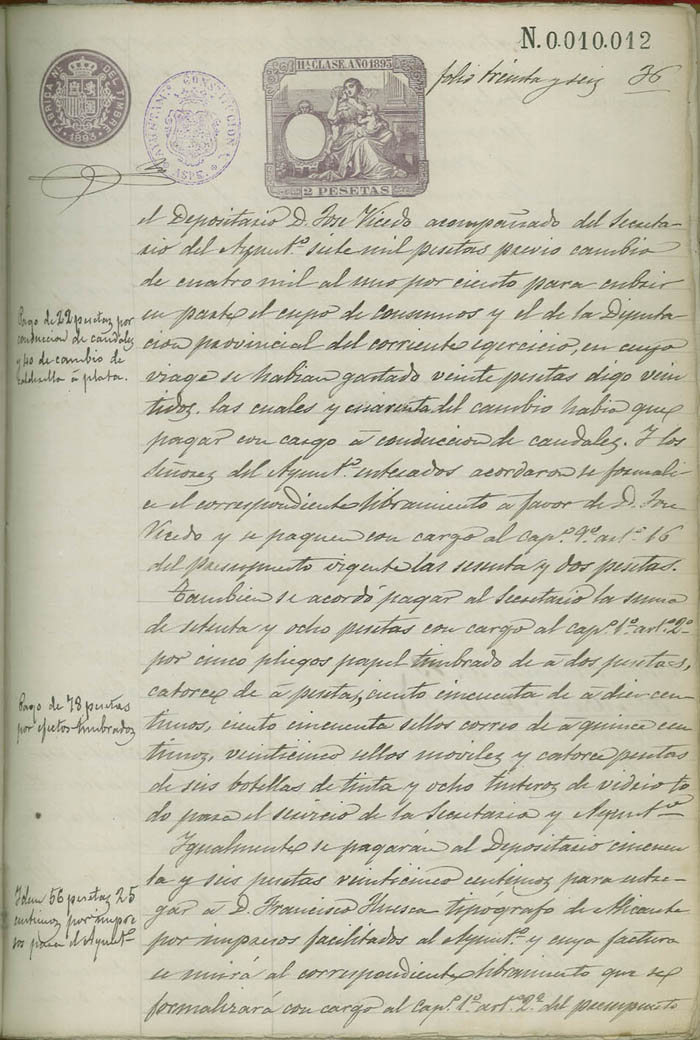 N.0.010.012
11ª CLASE. AÑO 1893
2 PESETAS
FÁBRICA NL. DEL TIMBRE
1893
AYUNTAMTO CONSTITUCIONAL
ASPE.
folio treinta y seis 36
el Depositario D. Jose Vicedo acompañado del Secreta-
rio del Ayuntº. siete mil pesetas previo cambio
de cuatro mil al uno por ciento para cubrir
en parte el cupo de consumos y el de la Diputa
cion provincial del corriente egercicio, en cuyo
viage se habian gastado veinte pesetas digo vein
tidos. las cuales y cuarenta del cambio habia que
pagar con cargo á conduccion de caudales. Y los
Señores del Ayuntº. enterados acordaron se formali-
ce el correspondiente libramiento á favor de D. Jose
Vicedo y se paguen con cargo al Capº. 9º. artº. 16
del presupuesto vigente las sesenta y dos pesetas.
Tambien se acordó pagar al Secretario la suma
de setenta y ocho pesetas con cargo al capº. 1º. artº. 2º
por cinco pliegos papel timbrado de á dos pesetas,
catorce de á peseta, ciento cincuenta de á diez cen-
timos, ciento cincuenta sellos correo de á quince cen
timos, veinticinco sellos moviles y catorce pesetas
de seis botellas de tinta y ocho tinteros de vidrio to
do para el servicio de la Secretaria y Ayuntº
Igualmente se pagarán al Depositario cincuen
ta y seis pesetas veinticinco centimos para entre-
gar á D. Francisco Huesca tipografo de Alicante
por impresos facilitados al Ayuntº. y cuya factura
se unirá al correspondiente libramiento que se
formalizará con cargo al Capº. 1º. artº. 2º. del presupuesto
Pago de 22 pesetas por
conduccion de caudales
y 40 de cambio de
calderilla á plata.
Pago de 78 pesetas
por efectos timbrados
Idem 56 pesetas 25
centimos por impre
sos para el Ayuntº